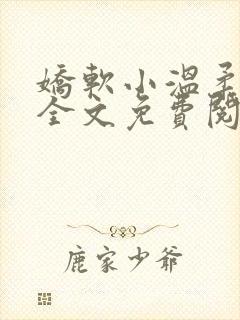 嬌軟小溫柔
全文免費閱
鹿家少爺